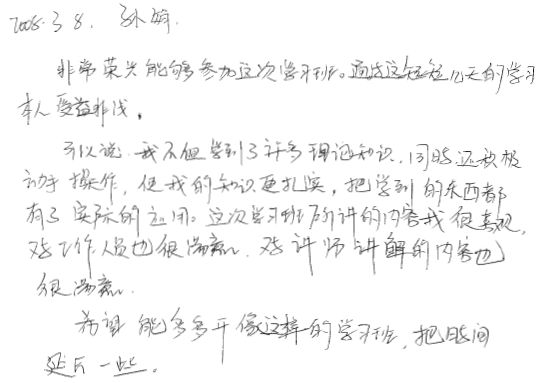 2008.3.8. 孙娟.
非常荣兴能够参加这次学习班。通过这短短几天的学习
本人受益非浅。
可以说 我不但学到了许多理论知识,同时还积极
动手操作,使我的知识更扎实,把学到的东西都
有了实际的应用。这次学习班所讲的内容我很喜观,
对工作人员也很满意. 对讲师讲解的内容也
很满意.
希望能多多开像这样的学习班,把时间
延长一些。